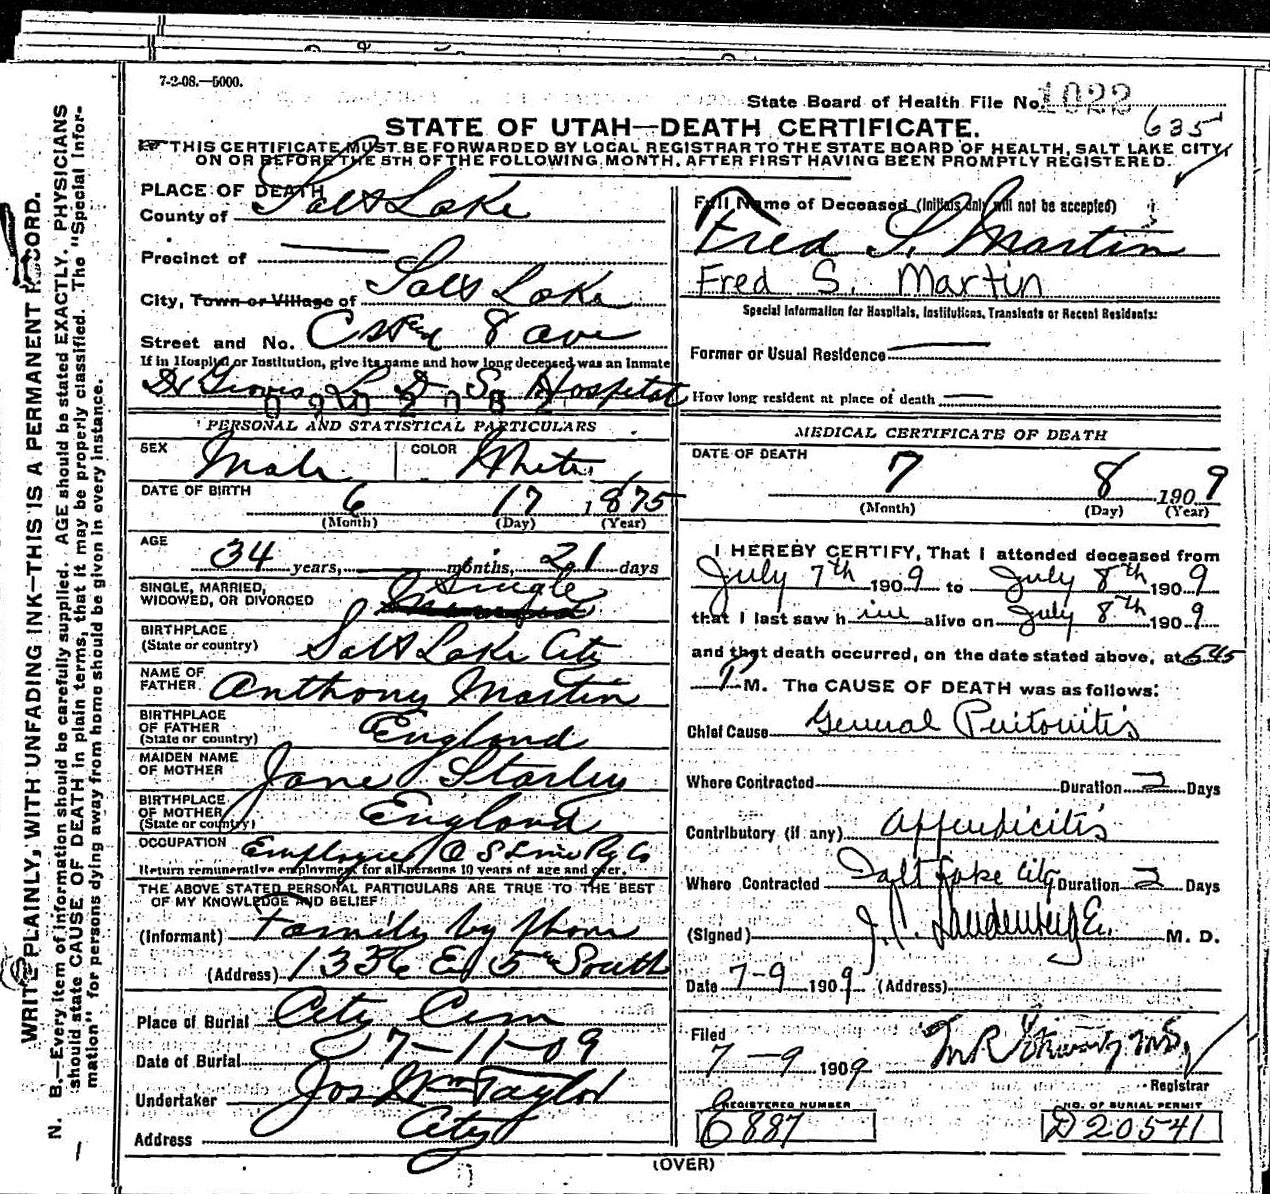 7-2-08.—5000.
State Board of Health File No. 1022
635
STATE OF UTAH—DEATH CERTIFICATE.
THIS CERTIFICATE MUST BE FORWARDED BY LOCAL REGISTRAR TO THE STATE BOARD OF HEALTH, SALT LAKE CITY,
ON OR BEFORE THE 5TH OF THE FOLLOWING MONTH, AFTER FIRST HAVING BEEN PROMPTLY REGISTERED.
WRITE PLAINLY, WITH UNFADING INK—THIS IS A PERMANENT RECORD.
N. B.—Every item of information should be carefully supplied. AGE should be stated EXACTLY. PHYSICIANS
should state CAUSE OF DEATH in plain terms, that it may be properly classified. The "Special Infor-
mation" for persons dying away from home should be given in every instance.
PLACE OF DEATH
County of Salt Lake
Precinct of
City, Town or Village of Salt Lake
Street and No. C St and 8 ave
If in Hospital or Institution, give its name and how long deceased was an inmate
Dr Groves L D S Hospital
PERSONAL AND STATISTICAL PARTICULARS
SEX Male COLOR White
DATE OF BIRTH 6 17 1875
(Month) (Day) (Year)
AGE 34 years, months, 21 days
SINGLE, MARRIED,
WIDOWED, OR DIVORCED Single
BIRTHPLACE
(State or country) Salt Lake City
NAME OF
FATHER Anthony Martin
BIRTHPLACE
OF FATHER
(State or country) England
MAIDEN NAME
OF MOTHER Jane Starley
BIRTHPLACE
OF MOTHER
(State or country) England
OCCUPATION Employee O S Line Ry Co
Return remunerative employment for all persons 10 years of age and over.
THE ABOVE STATED PERSONAL PARTICULARS ARE TRUE TO THE BEST
OF MY KNOWLEDGE AND BELIEF
(Informant) Family by phone
(Address) 1336 E 5th South
Place of Burial City Cem
Date of Burial 7-11-09
Undertaker Jos Wm Taylor
Address City
Full Name of Deceased (Initials only will not be accepted)
Fred S. Martin
Fred S. Martin
Special Information for Hospitals, Institutions, Transients or Recent Residents:
Former or Usual Residence
How long resident at place of death
MEDICAL CERTIFICATE OF DEATH
DATE OF DEATH
7 8 1909
(Month) (Day) (Year)
I HEREBY CERTIFY, That I attended deceased from
July 7th 1909 to July 8th 1909
that I last saw him alive on July 8th 1909
and that death occurred, on the date stated above, at 645
P M. The CAUSE OF DEATH was as follows:
Chief Cause General Peritonitis
Where Contracted Duration 2 Days
Contributory (if any) appendicitis
Where Contracted Salt Lake City Duration 2 Days
(Signed) M. D.
Date 7-9 1909 (Address)
Filed
7-9 1909
Registrar
REGISTERED NUMBER NO. OF BURIAL PERMIT
E 887 D 20541
(OVER)